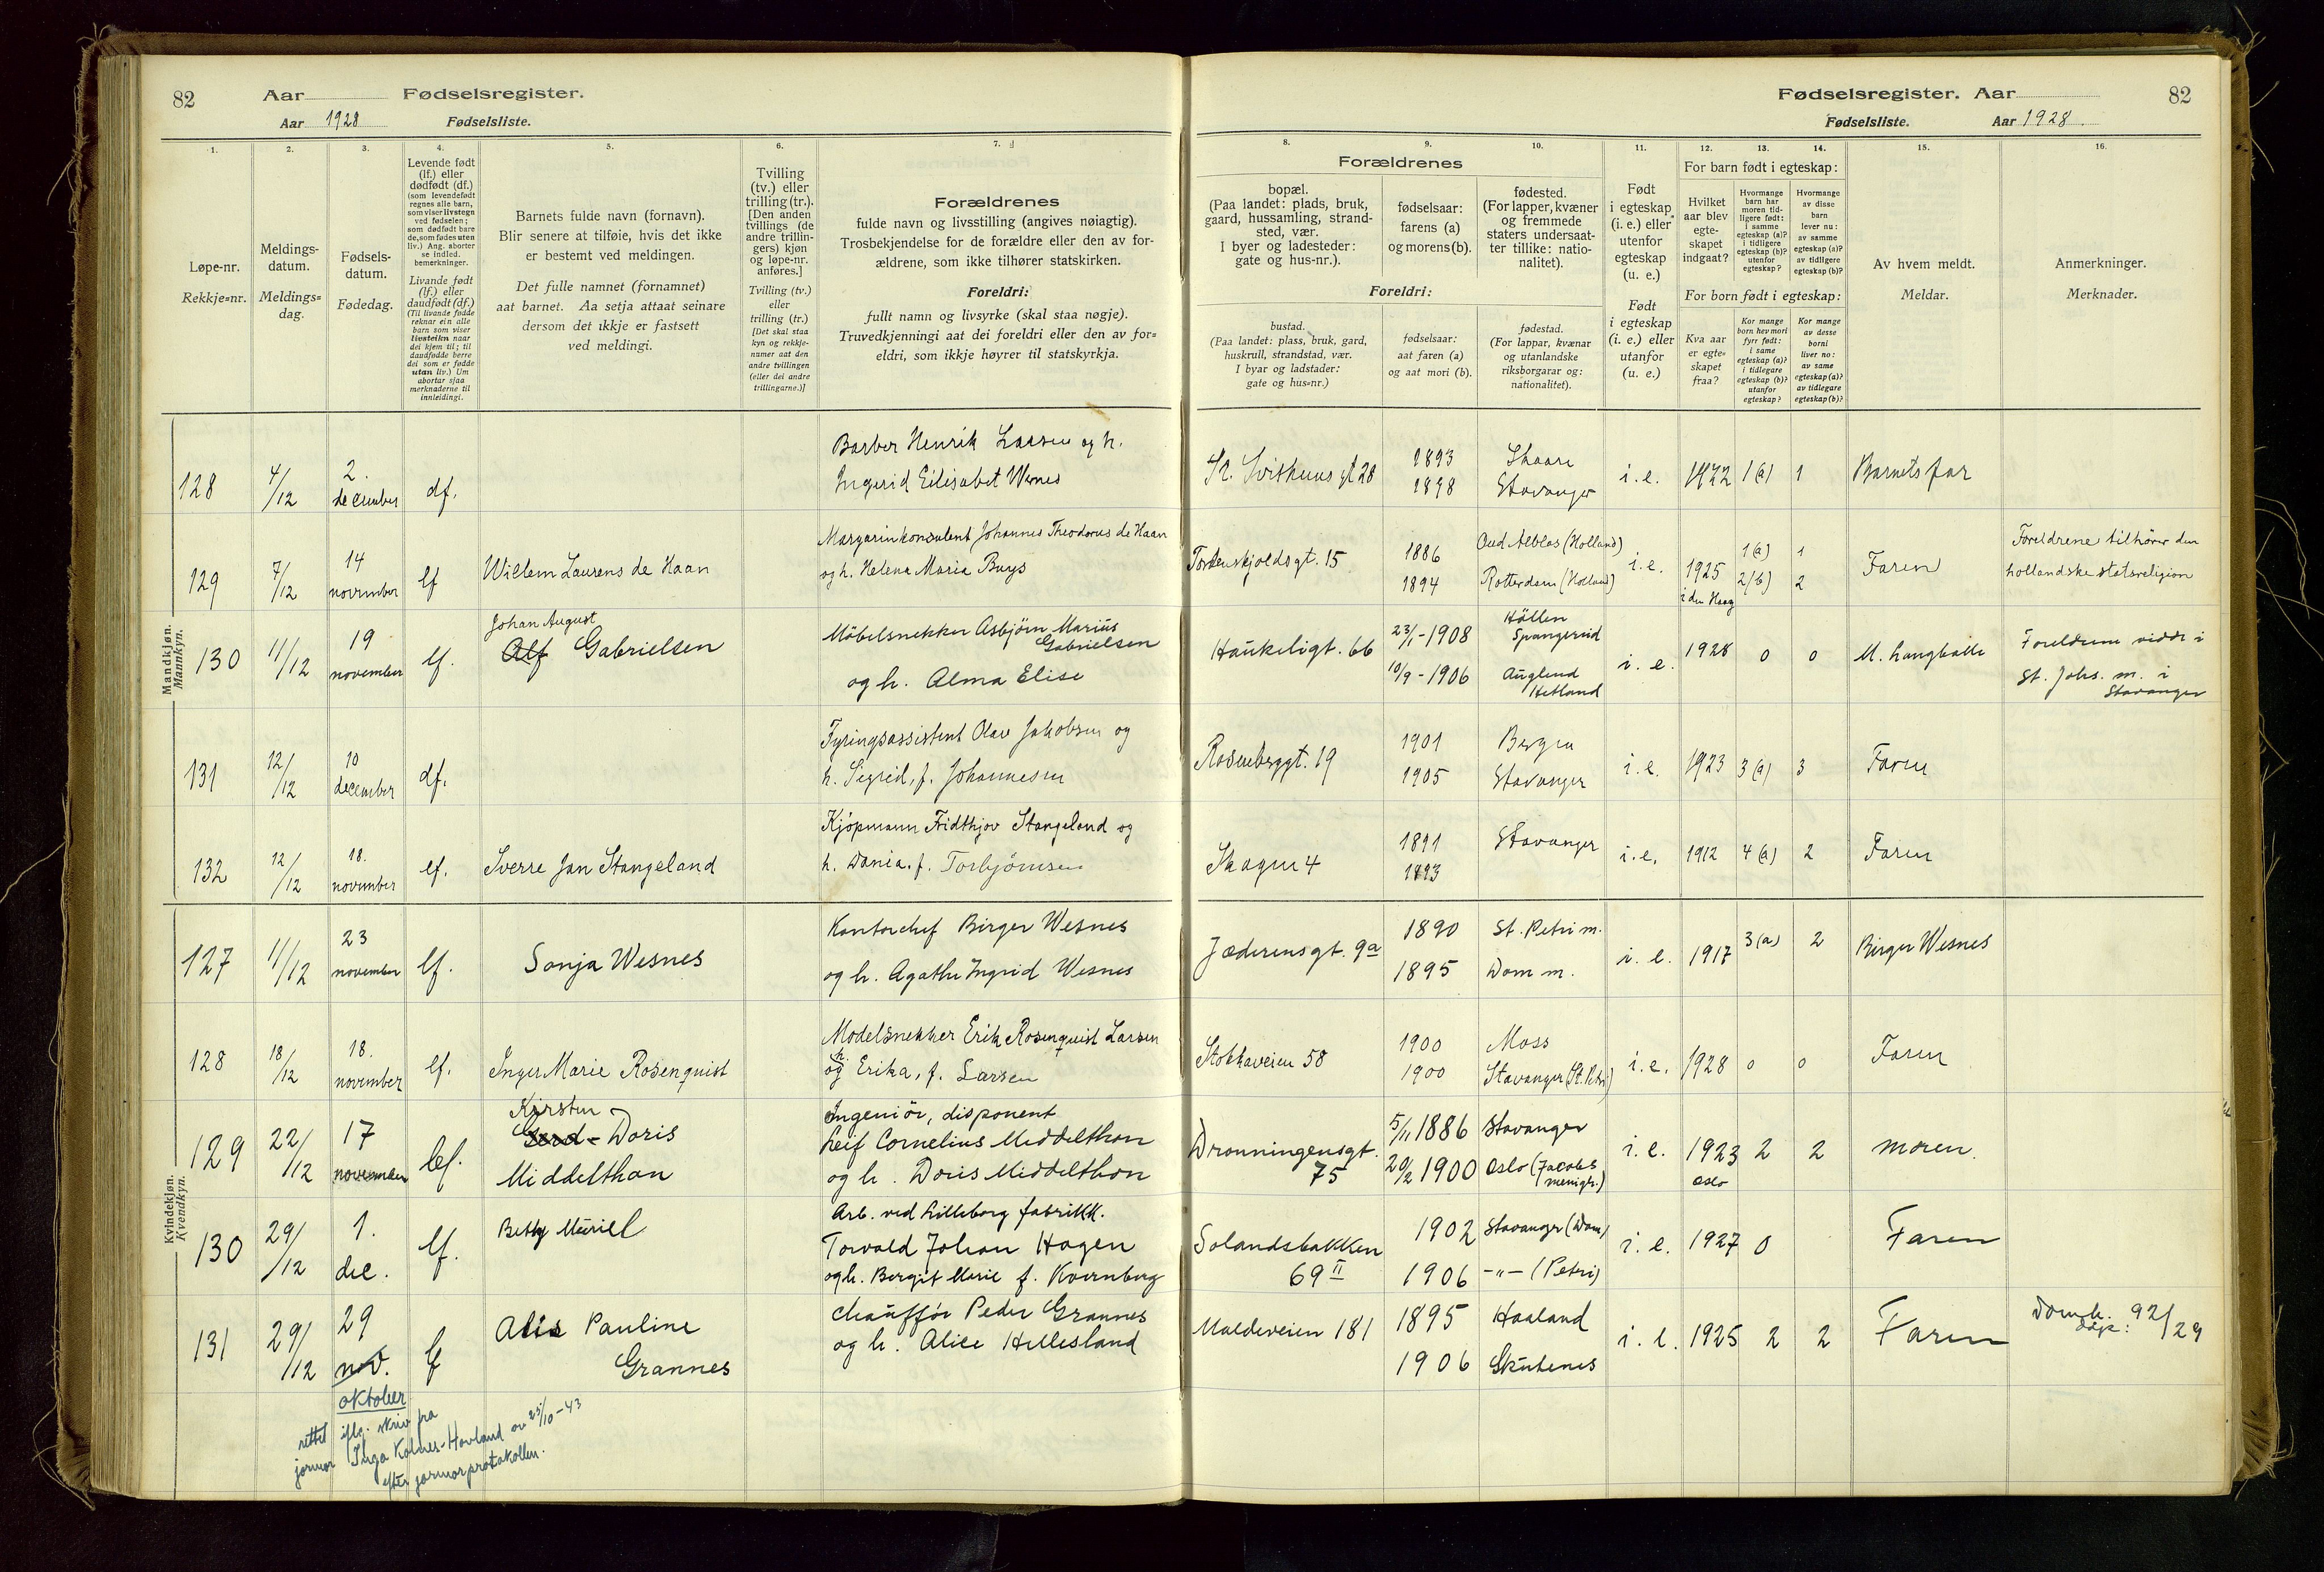 82 Aar Fødselsregister.
Aar 1928 Fødselsliste.
Fødselsregister. Aar 82
Fødselsliste. Aar 1928.
1. 2. 3. 4. 5. 6. 7.
Løpe-nr.
Rekkje=nr.
Meldings-
datum.
Meldings=
dag.
Fødsels-
datum.
Fødedag.
Levende født
(lf.) eller
dødfødt (df.)
(som levendefødt
regnes alle barn,
som viser livstegn
ved fødselen;
som dødfødt bare
de, som fødes uten
liv.) Ang. aborter
se indled.
bemerkninger.
Livande født
(lf.) eller
daudfødt (df.)
(Til livande fødde
reknar ein alle
barn som viser
livsteikn naar
dei kjem til; til
daudfødde berre
dei som er fødde
utan liv.) Um
abortar sjaa
merknaderne til
innleidingi.
Barnets fulde navn (fornavn).
Blir senere at tilføie, hvis det ikke
er bestemt ved meldingen.
Det fulle namnet (fornamnet)
aat barnet. Aa setja attaat seinare
dersom det ikkje er fastsett
ved meldingi.
Tvilling
(tv.) eller
trilling (tr.).
[Den anden
tvillings (de
andre trillin-
gers) kjøn
og løpe-nr.
anføres.]
Tvilling (tv.)
eller
trilling (tr.)
[Det skal staa
kyn og rekkje-
numer aat den
andre tvillingen
(eller dei andre
trillingarne.)]
Forældrenes
fulde navn og livsstilling (angives nøiagtig).
Trosbekjendelse for de forældre eller den av for-
ældrene, som ikke tilhører statskirken.
Foreldri:
fullt namn og livsyrke (skal staa nøgje).
Truvedkjenningi aat dei foreldri eller den av for=
eldri, som ikkje høyrer til statskyrkja.
8. 9. 10. 11. 12. 13. 14. 15. 16.
Forældrenes
bopæl.
(Paa landet: plads, bruk,
gaard, hussamling, strand-
sted, vær.
I byer og ladesteder:
gate og hus-nr.).
fødselsaar:
farens (a)
og morens (b).
fødested.
(For lapper, kvæner
og fremmede
staters undersaat-
ter tillike: natio-
nalitet).
Foreldri:
bustad.
(Paa landet: plass, bruk, gard,
huskrull, strandstad, vær.
I byar og ladstader:
gate og hus=nr.)
fødselsaar:
aat faren (a)
og aat mori (b).
fødestad.
(For lappar, kvænar
og utanlandske
riksborgarar og:
nationalitet).
Født
i egteskap
(i. e.) eller
utenfor
egteskap
(u. e.)
Født
i egteskap
(i. e.) eller
utanfor
(u. e.)
For barn født i egteskap:
Hvilket
aar blev
egte-
skapet
indgaat?
Hvormange
barn har
moren tid-
ligere født:
i samme
egteskap (a)?
i tidligere
egteskap (b)?
utenfor
egteskap?
Hvormange
av disse
barn
lever nu:
av samme
egteskap (a)?
av tidligere
egteskap (b)?
For born født i egteskap:
Kva aar
er egte=
skapet
fraa?
Kor mange
born hev mori
fyrr født:
i same
egteskap (a)?
i tidlegare
egteskap (b)?
utanfor
egteskap?
Kor mange
av desse
borni
liver no:
av same
egteskap (a)?
av tidlegare
egteskap (b)?
Av hvem meldt.
Meldar.
Anmerkninger.
Merknader.
Mandkjøn.
Mannkyn.
128 4/12 2. december df. Barber Henrik Larsen og h.
Ingerid Elisabet Wernes
St. Svithuns gt 28 1893 Skaare i.e. 1922 1(a) 1 Barnets far
1898 Stavanger
129 7/12 14 november lf Willem Laurens de Haan Margarinkonsulent Johannes Theodorus de Haan
og h. Helena Maria Buys
Tordenskjoldsgt. 15 1886 Oud Alblas (Holland) i.e. 1925 1(a) 1 Faren Foreldrene tilhører den
1894 Rotterdam (Holland) i den Haag 2(b) 2 hollandske statsreligion
130 11/12 19 november lf. Johan August
Alf Gabrielsen
Möbelsnekker Asbjörn Marius
Gabrielsen
og h. Alma Elise
Haukeligt. 66 23/1-1908 Höllen
Spangereid
10/9-1906 Auglend
Hetland
i.e. 1928 0 0 M. Langballe Foreldrene viddi i
St. Johs. m. i
Stavanger
131 12/12 10 december df. Fyringsassistent Olav Jakobsen og
h. Sigrid, f. Johannesen
Rosenberggt. 19 1901 Bergen i.e. 1923 3(a) 3 Faren
1905 Stavanger
132 12/12 18. november lf. Sverre Jan Stangeland Kjöpmann Fridthjov Stangeland og
h. Dania. f. Torbjörnsen
Skagen 4 1891 Stavanger i.e. 1912 4(a) 2 Faren
1893
Kvindekjøn.
Kvendkyn.
127 11/12 23 november lf. Sonja Wesnes Kontorchef Birger Wesnes
og h. Agathe Ingrid Wesnes
Jæderensgt. 9a 1890 St. Petri m. i.e. 1917 3(a) 2 Birger Wesnes
1895 Dom m.
128 18/12 18. november lf. Inger Marie Rosenquist Modelsnekker Erik Rosenquist Larsen
og h. Erika, f. Larsen
Stokkaveien 58 1900 Moss i.e. 1928 0 0 Faren
1900 Stavanger (St. Petri)
129 22/12 17 november lf. Kirsten
Doris
Middelthon
Ingeniör, disponent
Leif Cornelius Middelthon
og h. Doris Middelthon
Dronningensgt.
75
5/11 1886 Stavanger
20/2 1900 Oslo (Jacobs
menigh.)
i.e. 1923 Oslo 2 2 moren.
130 29/12 1. dec. lf. Betty Muriel Arb. ved Lilleborg fabrikk.
Torvald Johan Hagen
og h. Bergit Marie f. Kvernberg
Solandsbakken
69 II
1902 Stavanger (Dom)
1906 -"- (Petri)
i.e. 1927 0 Faren
131 29/12 29 nov. lf Alis Pauline
Grannes
Chaufför Peder Grannes
og h. Alice Hellesland
Maldeveien 181 1895 Haaland i.e. 1925 2 2 Faren Domk.
1906 Skutenes dåp: 92/29
oktober
rettet iflg. skriv fra
jormor Inga Kolnes-Hovland av 25/10-43
efter jormorprotokollen.